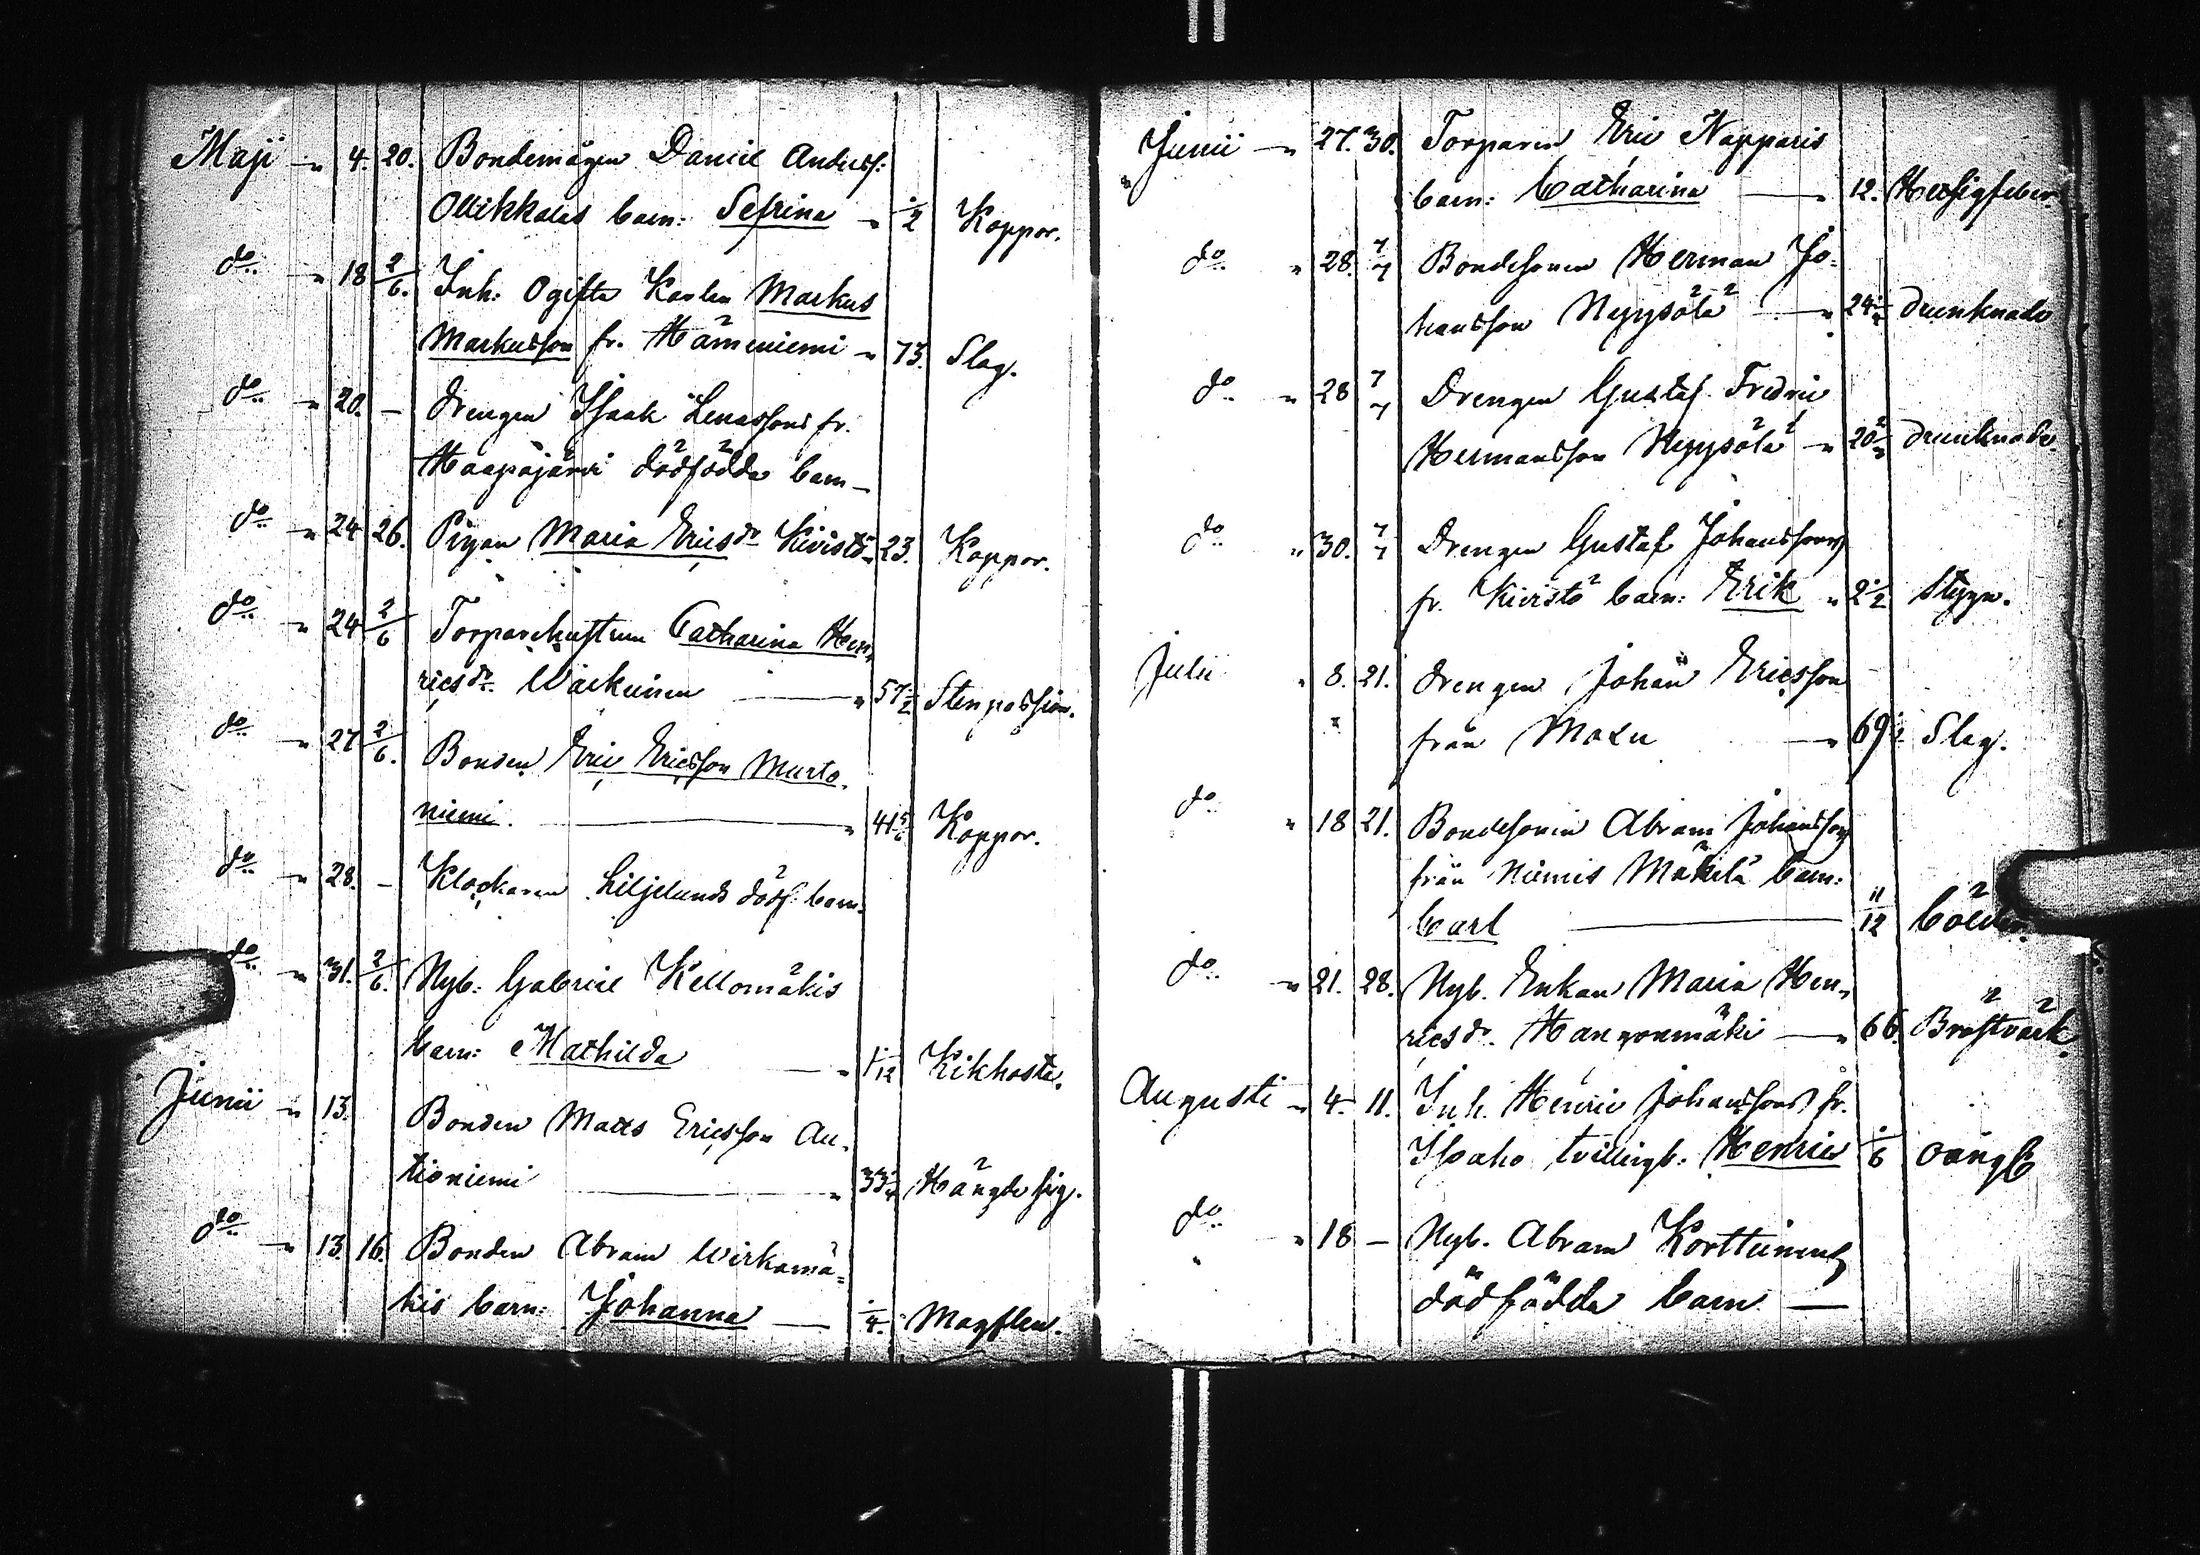 Maji " 4. 20. Bondemågen Daniel Anderss:
Ollikkalas barn: Sefrina " 1/2 Koppor.
do " 18 2/6. Inh: Ogifta Karlen Markus
Markusson fr. Hämeniemi " 73. Slag.
do " 20. — Drengen Isaak Lenassons fr.
Haapajärvi dödfödda barn —
do " 24 26. Pigan Maria Ericsdr Kivistö " 23. Koppor.
do " 24 2/6 Torparehustrun Catharina Hen-
ricsdr. Warkuinen — " 57 1/2 Stenpassion.
do " 27 2/6. Bonden Eric Ericsson Murto-
niemi. — " 41 5/6 Koppor.
do " 28. — Klockaren Liljelunds död. barn.
do " 31. 2/6. Nyb: Gabriel Kellomäkis
barn: Mathilda — " 1/12 Kikhosta.
Junii " 13. Bonden Matts Ericsson An-
tioniemi — " 33 Hängde sig.
do " 13. 16. Bonden Abram Wirkamä=
kis barn: Johanna — 1/4. Magflen.
Junii " 27. 30. Torparen Eric Napparis
barn: Catharina — " 12. Hetsigfeber.
do " 28. 7/7 Bondesonen Herman Jo-
hansson Nyysölä — " 24 drunknade
do " 28 7/7 Drengen Gustaf Fredric
Hermansson Nyysölä — " 20 drunknade.
do " 30. 7/7 Drengen Gustaf Johanssons
fr. Kivistö barn: Erik " 2 1/2 Stygn.
Julii " 8. 21. Drengen Johan Ericsson
från — " 69 Slag.
do " 18 21. Bondesonen Abram Johanssons
från Niemis Mäkelä barn:
Carl — 11/12
do " 21. 28. Nyb. Enkan Maria Hen-
ricsdr. Hangonmäki — " 66. Bröstvärk.
Augusti " 4. 11. Inh. Henric Johanssons fr.
Isoaho tvillingb: Henric 1/6 oång
do " 18 — Nyb. Abram Korttinens
dödfödda barn —